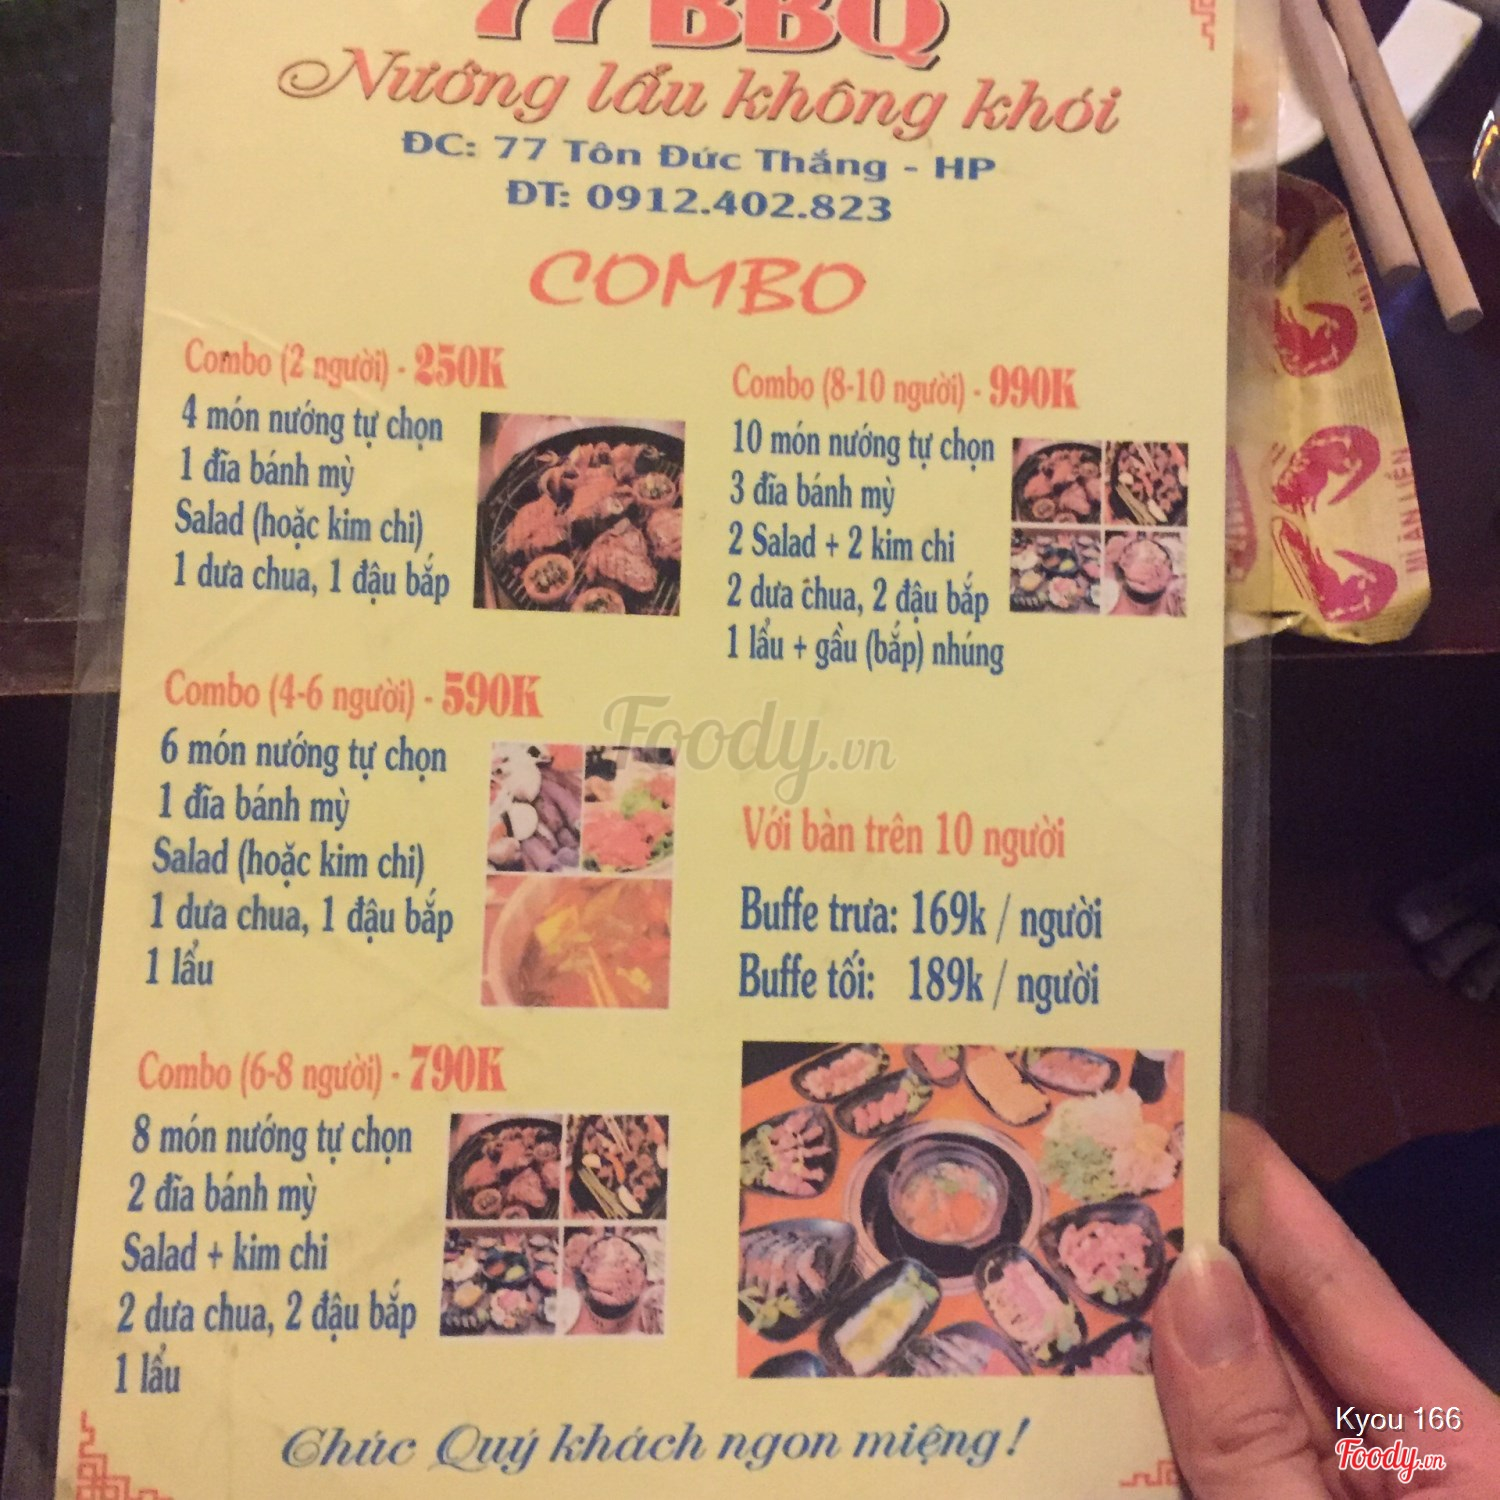 77 BBQ
Nướng lẩu không khói
ĐC: 77 Tôn Đức Thắng - HP
ĐT: 0912.402.823
COMBO
Combo (2 người) - 250K
4 món nướng tự chọn
1 đĩa bánh mỳ
Salad (hoặc kim chi)
1 dưa chua, 1 đậu bắp
Combo (4-6 người) - 590K
6 món nướng tự chọn
1 đĩa bánh mỳ
Salad (hoặc kim chi)
1 dưa chua, 1 đậu bắp
1 lẩu
Combo (6-8 người) - 790K
8 món nướng tự chọn
2 đĩa bánh mỳ
Salad + kim chi
2 dưa chua, 2 đậu bắp
1 lẩu
Combo (8-10 người) - 990K
10 món nướng tự chọn
3 đĩa bánh mỳ
2 Salad + 2 kim chi
2 dưa chua, 2 đậu bắp
1 lẩu + gầu (bắp) nhúng
Với bàn trên 10 người
Buffe trưa: 169k / người
Buffe tối: 189k / người
Chúc Quý khách ngon miệng!
Foody.vn
MÌ ĂN LIỀN
Kyou 166
Foody.vn